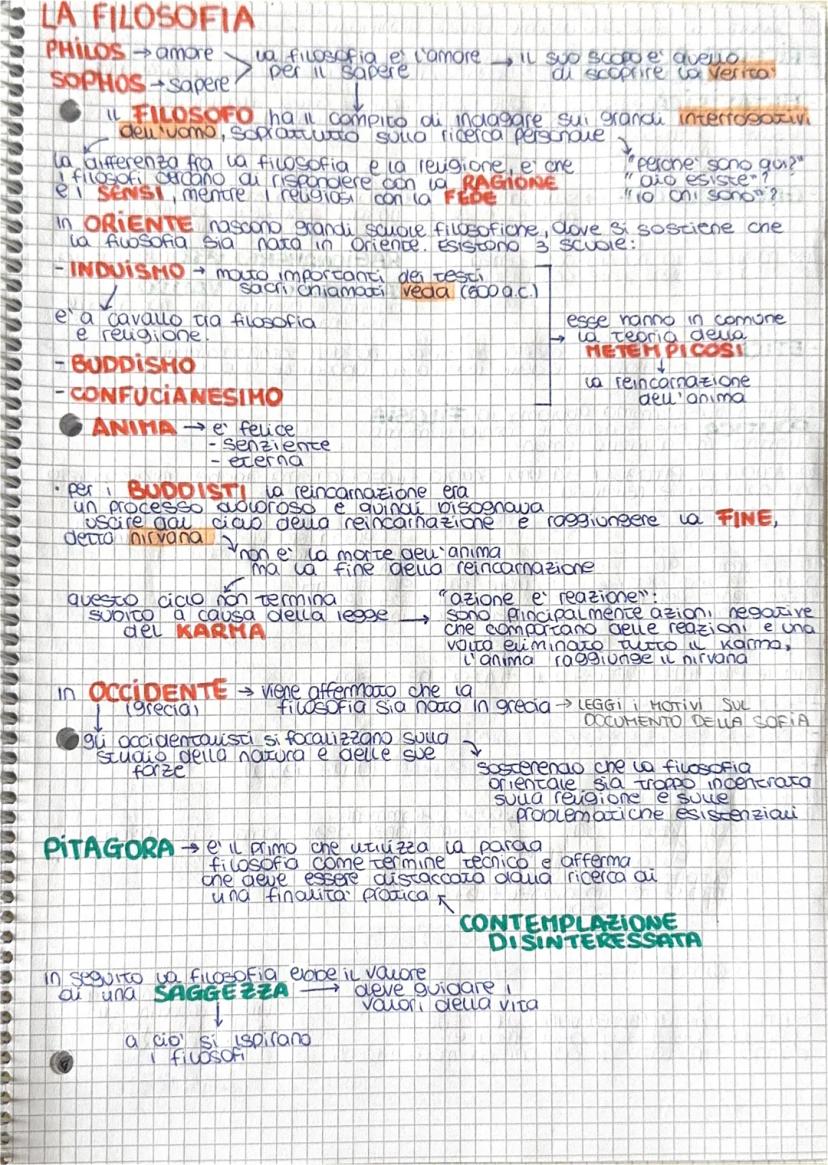 LA FILOSOFIA
PHILOS → amore
SOPHOS → sapere
la filosofia e' l'amore → il suo scopo e' quello
per il sapere
di scoprire la verita'
il FILOSOFO ha il compito di indagare sui grandi interrogativi
dell'uomo, soprattutto sulla ricerca personale
la differenza fra la filosofia e la religione, e' che
i filosofi cercano di rispondere con la RAGIONE
e i SENSI, mentre i religiosi con la FEDE
"perche' sono qui?"
"dio esiste"?
"io chi sono"?
in ORIENTE nascono grandi scuole filosofiche, dove si sostiene che
la filosofia sia nata in oriente. Esistono 3 scuole:
- INDUISMO → molto importanti dei testi
sacri chiamati veda (500 a.c.)
e' a cavallo tra filosofia
e religione.
- BUDDISMO
- CONFUCIANESIMO
esse hanno in comune
→ la teoria della
METEMPICOSI
la reincarnazione
dell'anima
ANIMA → e' felice
- senziente
- eterna
• per i BUDDISTI la reincarnazione era
un processo doloroso e quindi bisognava
uscire dal ciclo della reincarnazione e raggiungere la FINE,
detto nirvana
non e' la morte dell'anima
ma la fine della reincarnazione
questo ciclo non termina
subito a causa della legge →
del KARMA
"azione e' reazione":
sono principalmente azioni negative
che comportano delle reazioni e una
volta eliminato tutto il karma,
l'anima raggiunge il nirvana
in OCCIDENTE → viene affermato che la
(grecia) filosofia sia nata in grecia → LEGGI I MOTIVI SUL
DOCUMENTO DELLA SOFIA
gli occidentalisti si focalizzano sullo
studio della natura e delle sue
forze
sostenendo che la filosofia
orientale sia troppo incentrata
sulla religione e sulle
problematiche esistenziali
PITAGORA → e' il primo che utilizza la parola
filosofia come termine tecnico e afferma
che deve essere distaccata dalla ricerca di
una finalita' pratica
CONTEMPLAZIONE
DISINTERESSATA
in seguito la filosofia ebbe il valore
di una SAGGEZZA → deve guidare i
valori della vita
a cio' si ispirano
i filosofi